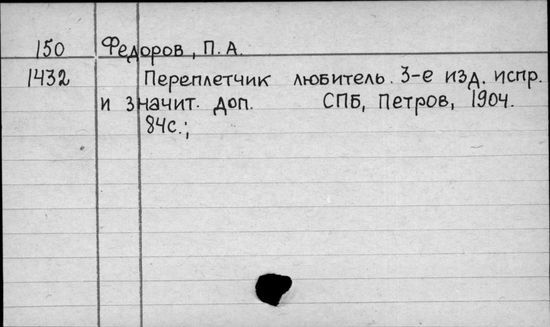 150 Федоров, П. А.
1432 Переплетчик любитель. 3-е изд. испр.
и значит. доп. СПБ, Петров, 1904.
84с.;